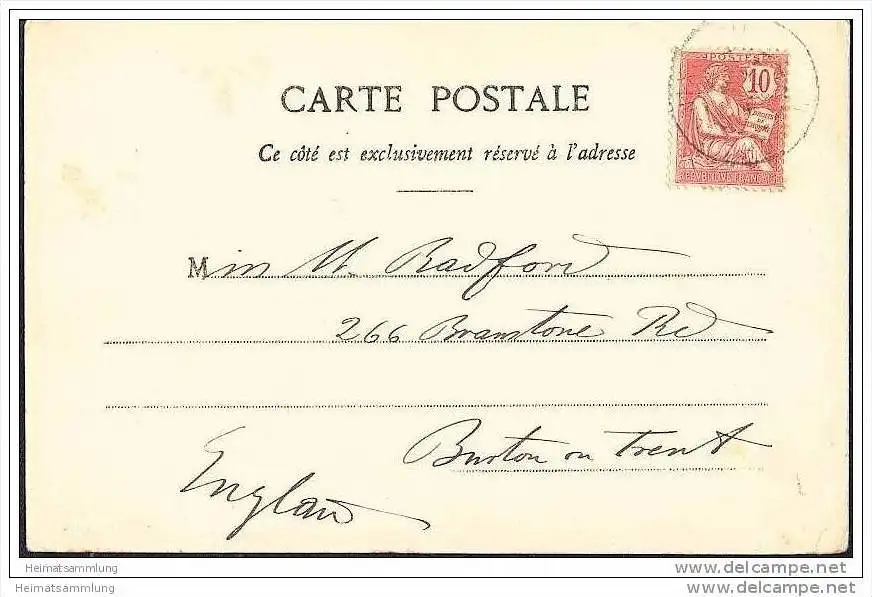 CARTE POSTALE
Ce côté est exclusivement réservé à l'adresse
POSTES
10
DROITS DE L'HOMME
REPUBLIQUE FRANCAISE
Miss M. Radford
266 Branstone Rd
Burton on Trent
England
Heimatsammlung
www.delcampe.net
Heimatsammlung
www.delcampe.net